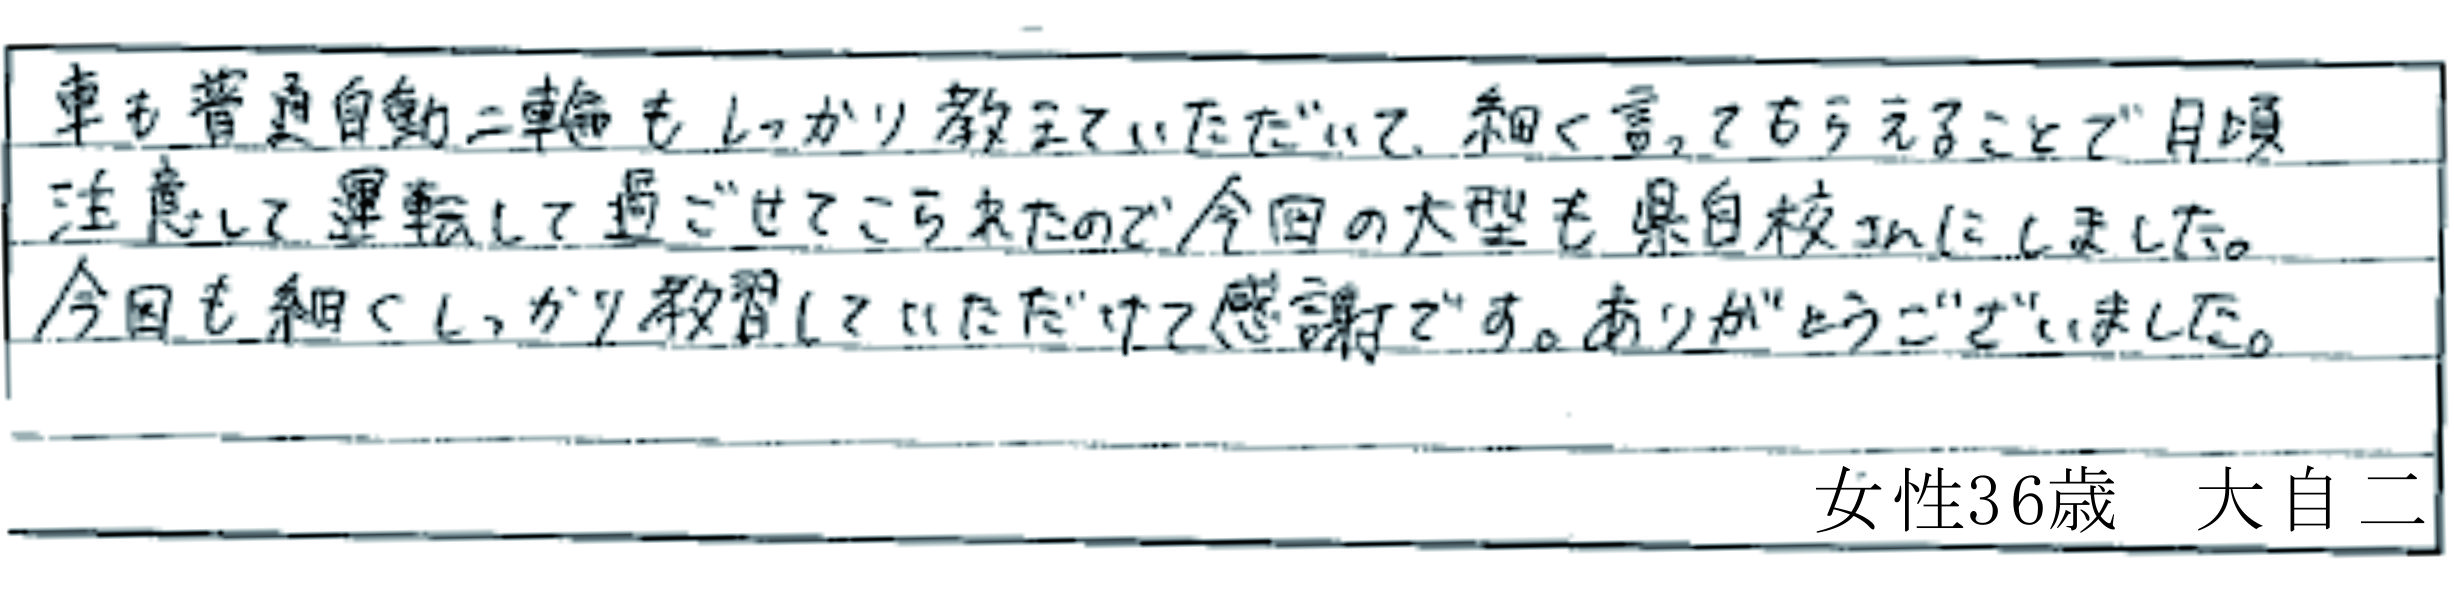 車も普通自動二輪もしっかり教えていただいて、細く言ってもらえることで日頃
注意して運転して過ごせてこられたので今回の大型も県自校さんにしました。
今回も細くしっかり教習していただけて感謝です。ありがとうございました。
女性36歳　大自二